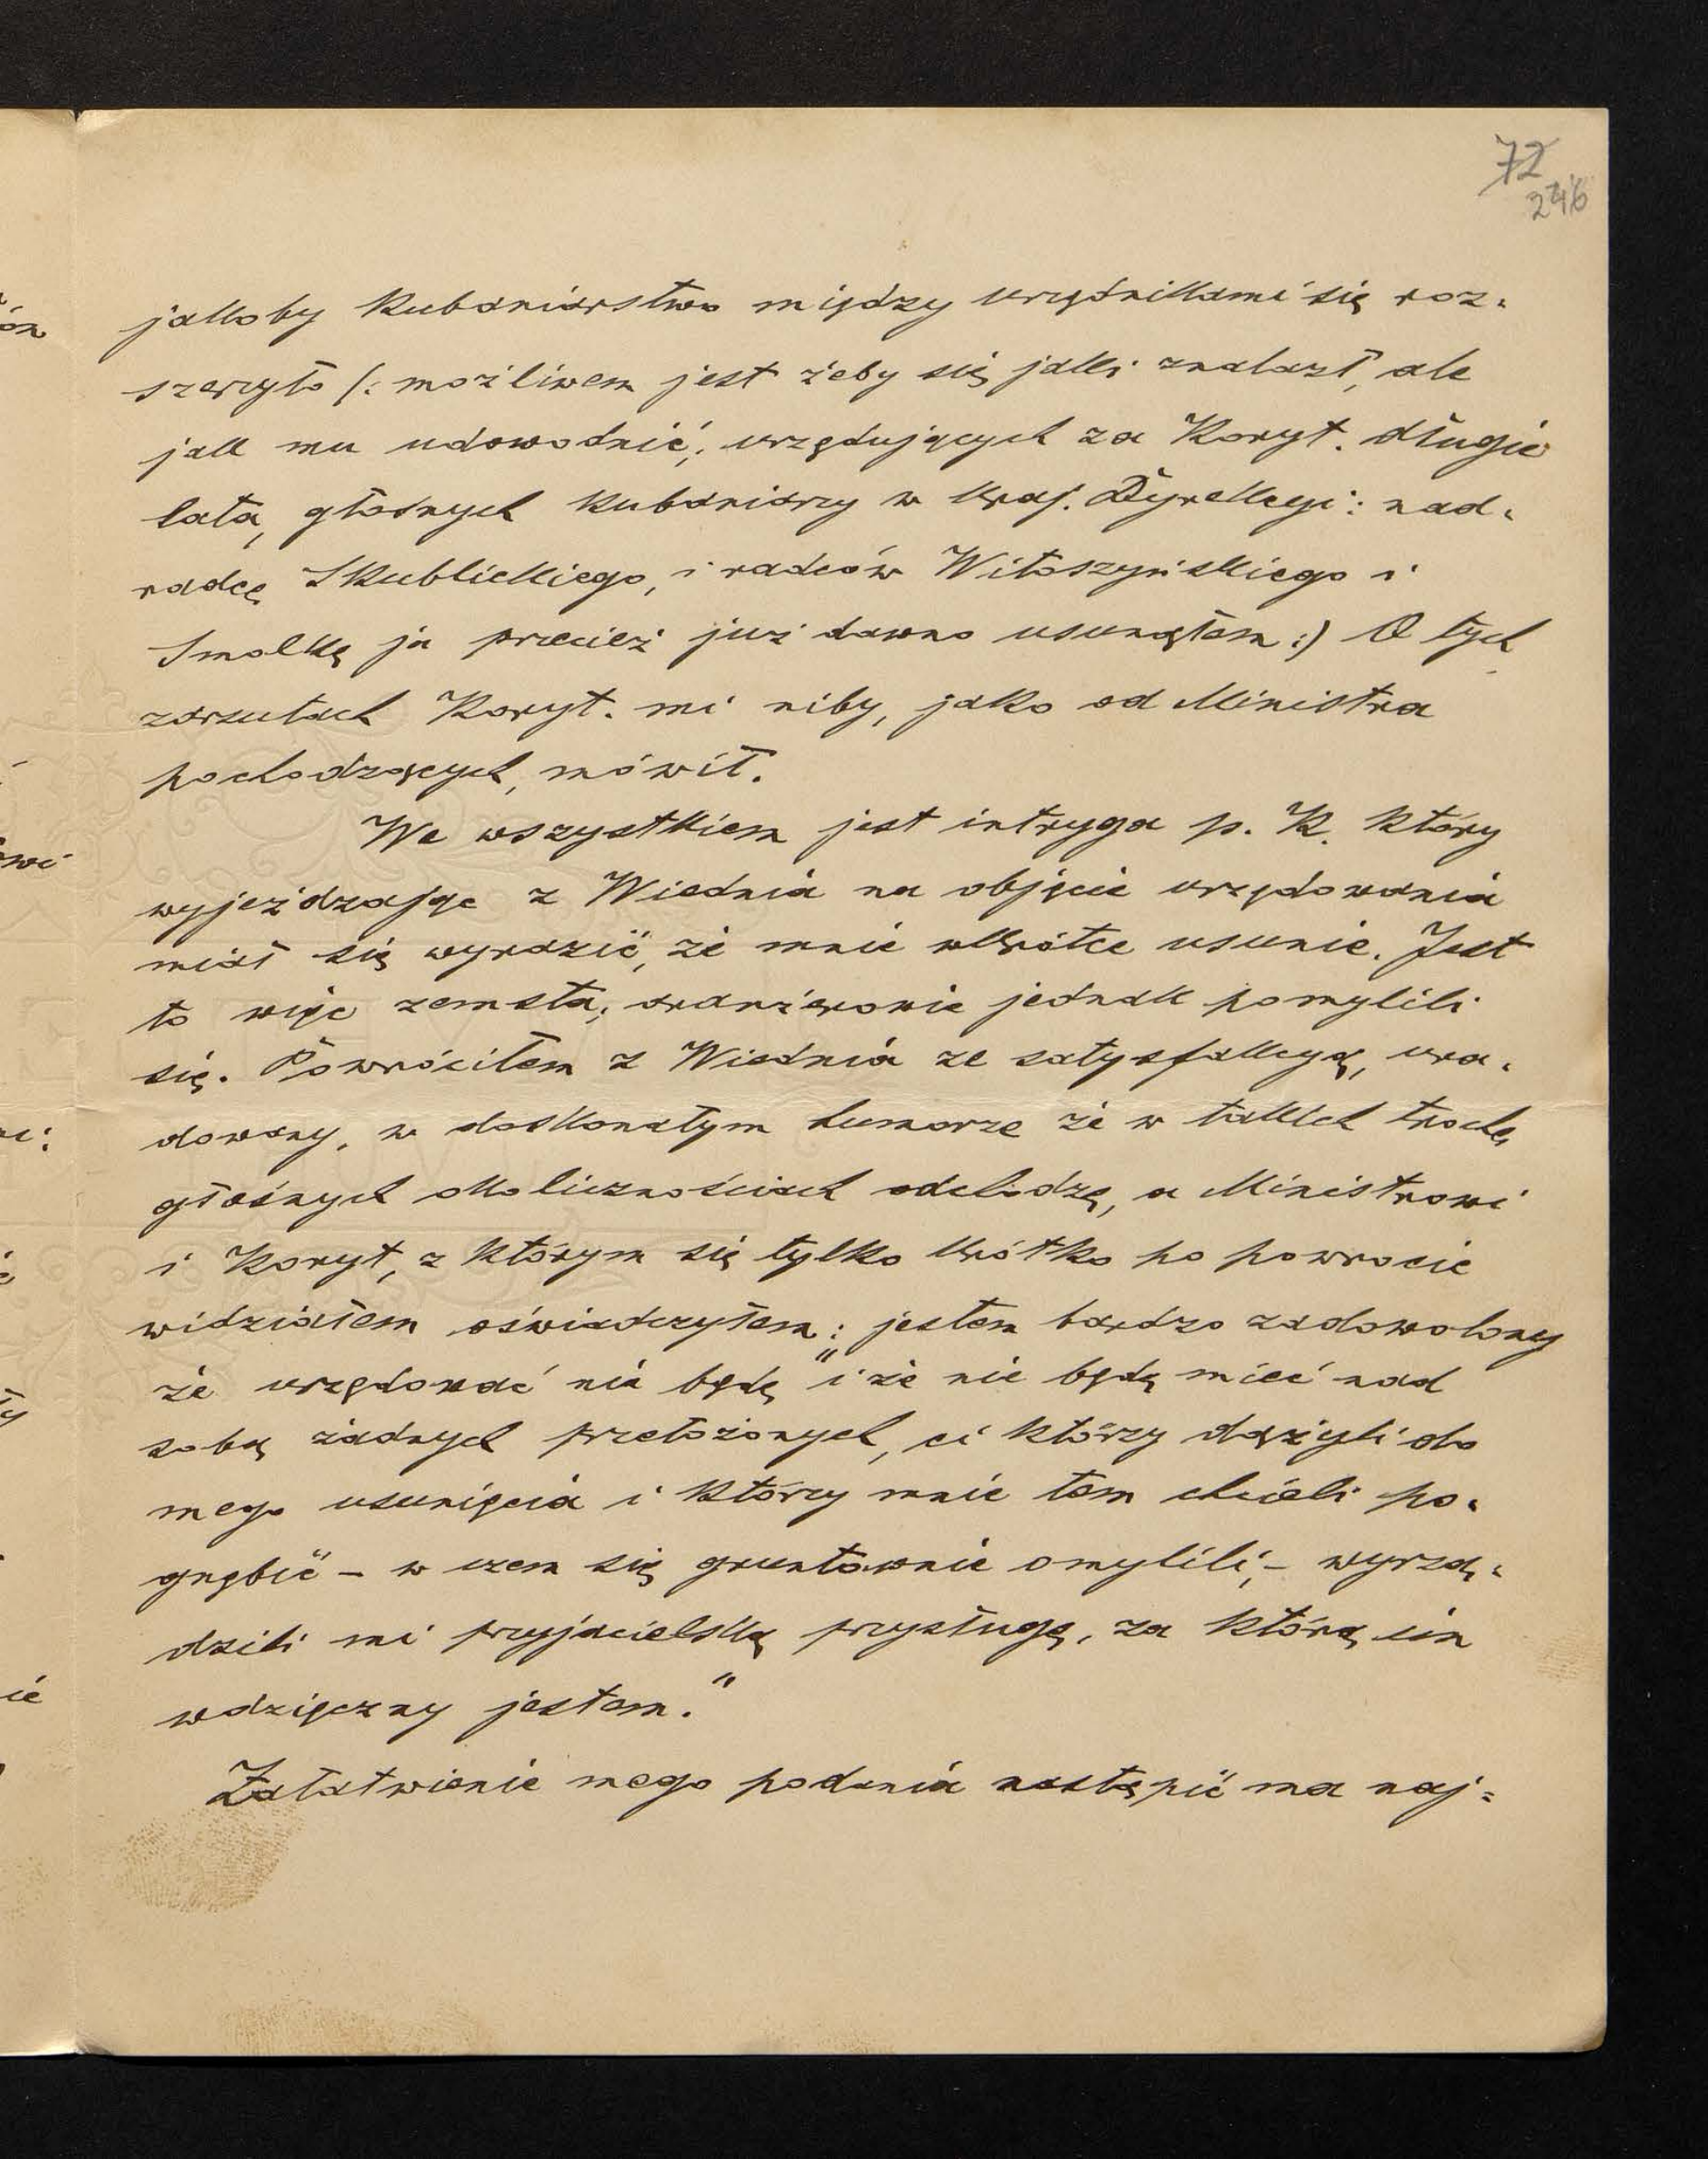 72
246
jakoby kubaniarstwo między urzędnikami się roz-
szerzyło /: możliwem jest żeby się jaki znalazł, ale
jak mu udowodnić; urzędujących za Koryt. długie
lata, głośnych kubaniarzy w Kraj. Dyrekcyi: nad-
radcę Skublickiego, i radców Witoszyńskiego i
Smolkę ja przecież już dawno usunąłem :) O tych
zarzutach Koryt. mi niby, jako od Ministra
pochodzących, mówił.
We wszystkiem jest intryga p. K. który
wyjeżdzając z Wiednia na objęcie urzędowania
miał się wyrazić, że mnie wkrótce usunie. Jest
to więc zemsta; aranżerowie jednak pomylili
się. Powróciłem z Wiednia ze satysfakcyą, ura-
dowany, w doskonałym humorze że w takich trochę
głośnych okolicznościach odchodzę, a Ministrowi
i Koryt, z którym się tylko krótko po powrocie
widziałem oświadczyłem: „jestem bardzo zadowolony
że urzędować nie będę i że nie będę mieć nad
sobą żadnych przełożonych, ci którzy dążyli do
mego usunięcia i którzy mnie tem chcieli po-
gnębić – w czem się gruntownie omylili, – wyrzą-
dzili mi przyjacielską przysługę, za którą im
wdzięczny jestem."
Załatwienie mego podania nastąpić ma naj-